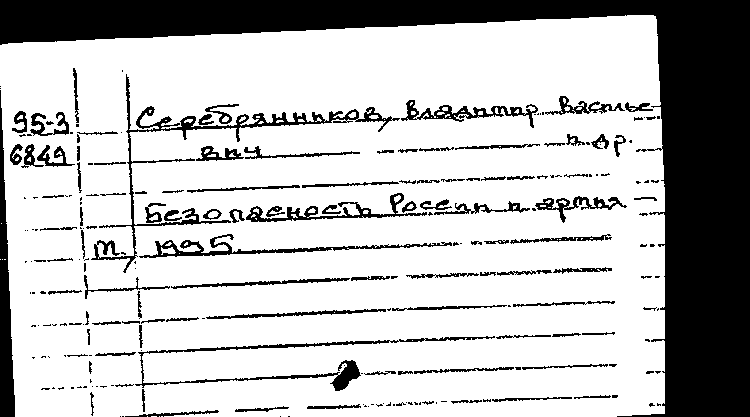 95-3 Серебрянников, Владимир Василье-
6849 вич и др.
Безопасность России и армия —
М., 1995.